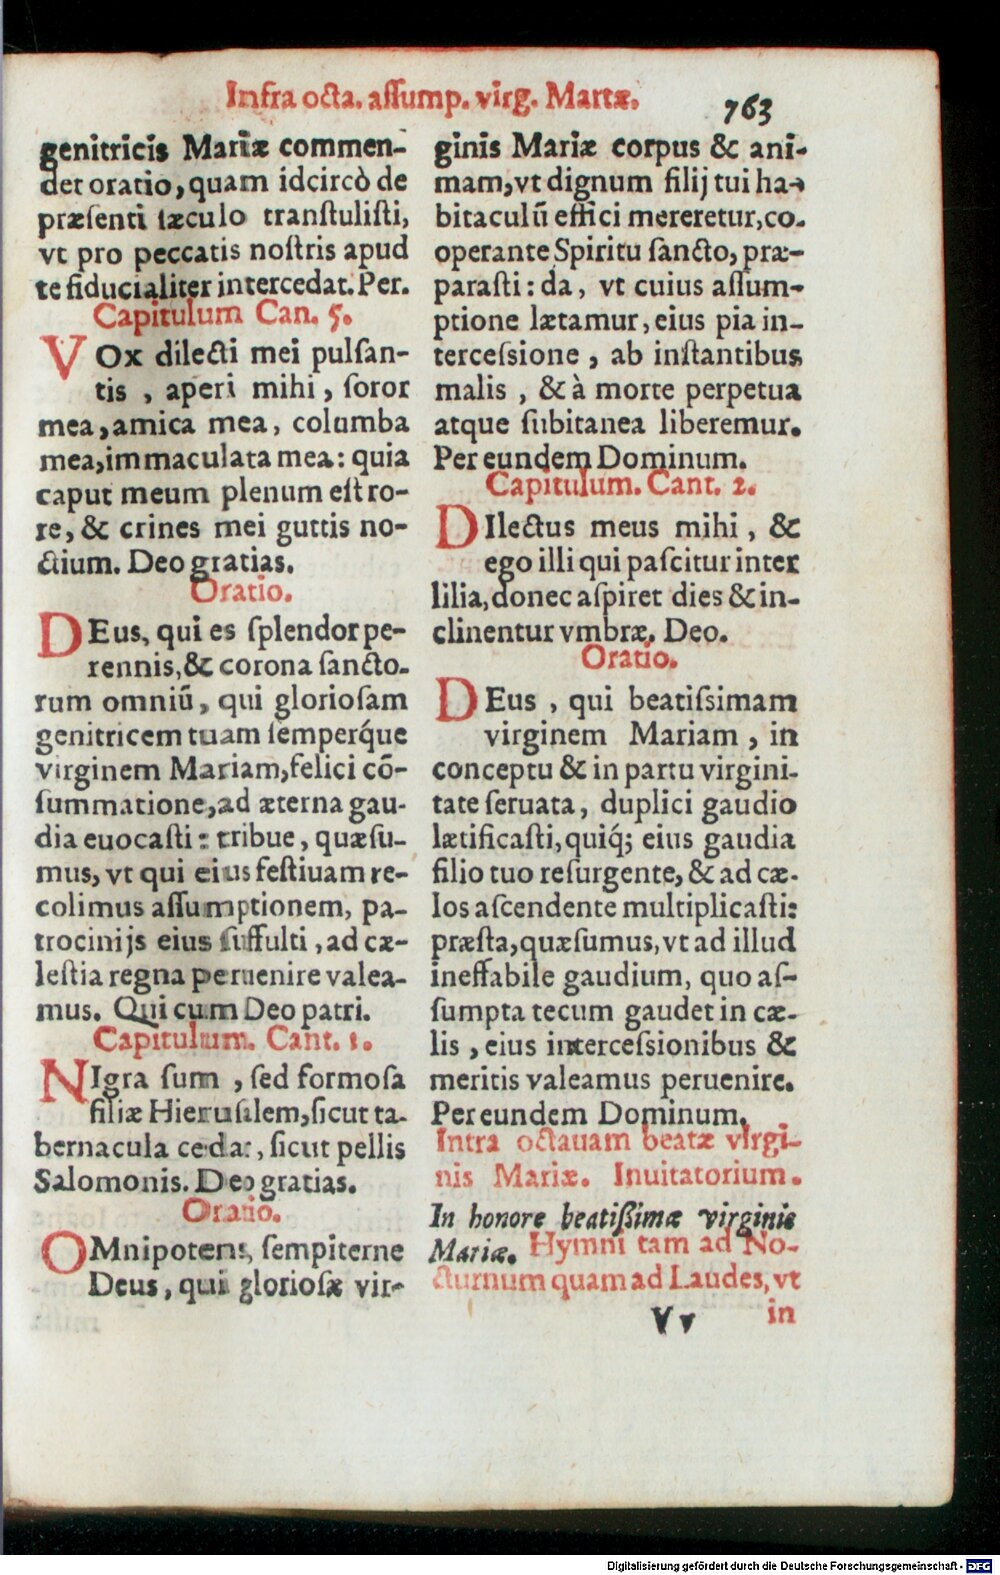 Infra octa. assump. virg. Mariæ.
763
genitricis Mariæ commen-
det oratio, quam idcircò de
præsenti sæculo transtulisti,
vt pro peccatis nostris apud
te fiducialiter intercedat. Per.
Capitulum Can. 5.
VOx dilecti mei pulsan-
tis , aperi mihi , soror
mea, amica mea, columba
mea, immaculata mea: quia
caput meum plenum est ro-
re, & crines mei guttis no-
ctium. Deo gratias.
Oratio.
DEus, qui es splendor pe-
rennis, & corona sancto-
rum omniũ, qui gloriosam
genitricem tuam semperq́ue
virginem Mariam, felici cõ-
summatione, ad æterna gau-
dia euocasti: tribue, quæsu-
mus, vt qui eius festiuam re-
colimus assumptionem, pa-
trocinijs eius suffulti , ad cæ-
lestia regna peruenire valea-
mus. Qui cum Deo patri.
Capitulum. Cant. 1.
NIgra sum , sed formosa
filiæ Hierusalem, sicut ta-
bernacula cedar, sicut pellis
Salomonis. Deo gratias.
Oratio.
OMnipotens, sempiterne
Deus, qui gloriosæ vir-
ginis Mariæ corpus & ani-
mam, vt dignum filij tui ha-
bitaculũ effici mereretur, co-
operante Spiritu sancto, præ-
parasti: da, vt cuius assum-
ptione lætamur, eius pia in-
tercessione , ab instantibus
malis , & à morte perpetua
atque subitanea liberemur.
Per eundem Dominum.
Capitulum. Cant. 2.
DIlectus meus mihi , &
ego illi qui pascitur inter
lilia, donec aspiret dies & in-
clinentur vmbræ. Deo.
Oratio.
DEus , qui beatissimam
virginem Mariam , in
conceptu & in partu virgini-
tate seruata, duplici gaudio
lætificasti, quiq́; eius gaudia
filio tuo resurgente, & ad cæ-
los ascendente multiplicasti:
præsta, quæsumus, vt ad illud
ineffabile gaudium, quo as-
sumpta tecum gaudet in cæ-
lis , eius intercessionibus &
meritis valeamus peruenire.
Per eundem Dominum.
Intra octauam beatæ virgi-
nis Mariæ. Inuitatorium.
In honore beatißimæ virginis
Mariæ. Hymni tam ad No-
cturnum quam ad Laudes, vt
Vv
in
Digitalisierung gefördert durch die Deutsche Forschungsgemeinschaft - DFG